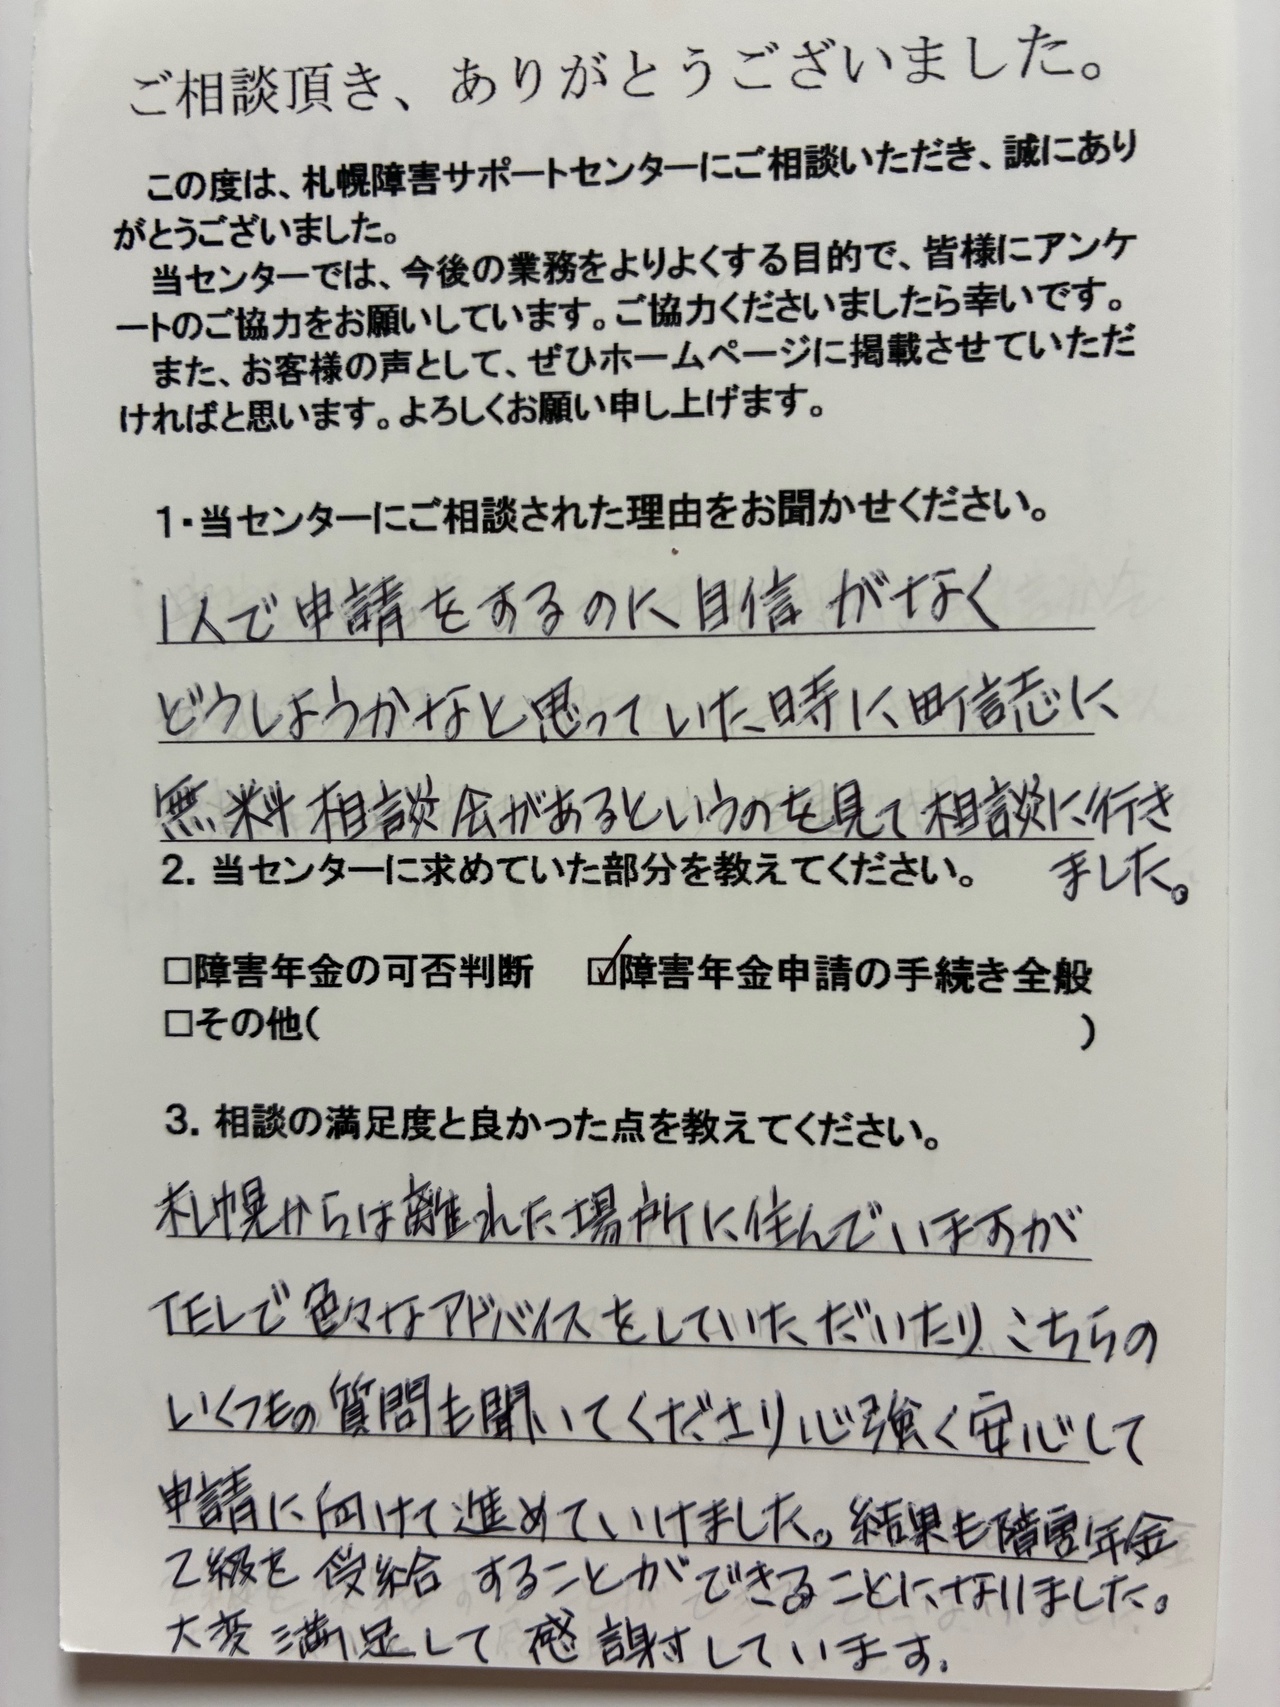 ご相談頂き、ありがとうございました。
この度は、札幌障害サポートセンターにご相談いただき、誠にあり
がとうございました。
当センターでは、今後の業務をよりよくする目的で、皆様にアンケ
ートのご協力をお願いしています。ご協力くださいましたら幸いです。
また、お客様の声として、ぜひホームページに掲載させていただ
ければと思います。よろしくお願い申し上げます。
1・当センターにご相談された理由をお聞かせください。
1人で申請をするのに自信がなく
どうしようかなと思っていた時に町誌に
無料相談会があるというのを見て相談に行き
ました。
2. 当センターに求めていた部分を教えてください。
□障害年金の可否判断 ☑障害年金申請の手続き全般
□その他( )
3. 相談の満足度と良かった点を教えてください。
札幌からは離れた場所に住んでいますが
TELで色々なアドバイスをしていただいたり こちらの
いくつもの質問も聞いてくださり心強く安心して
申請に向けて進めていけました。結果も障害年金
2級を受給することができることになりました。
大変満足して感謝しています。